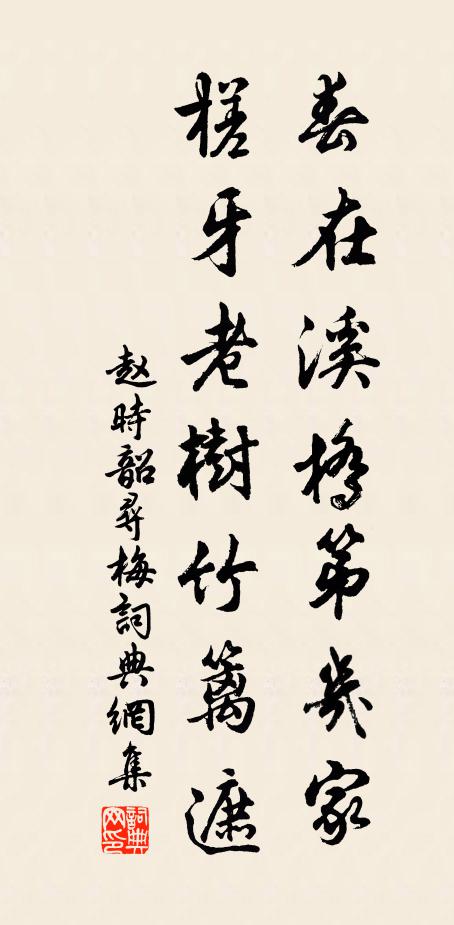 春在溪橋第幾家
槎牙老樹竹籬遮
赵時韶尋梅詞典網集
詞典網印